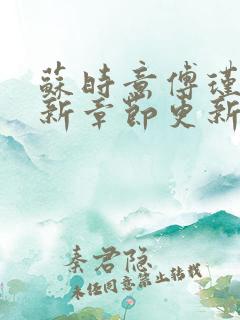 蘇時意傅瑾
新章節更新
秦君隐
未经同意禁止转载